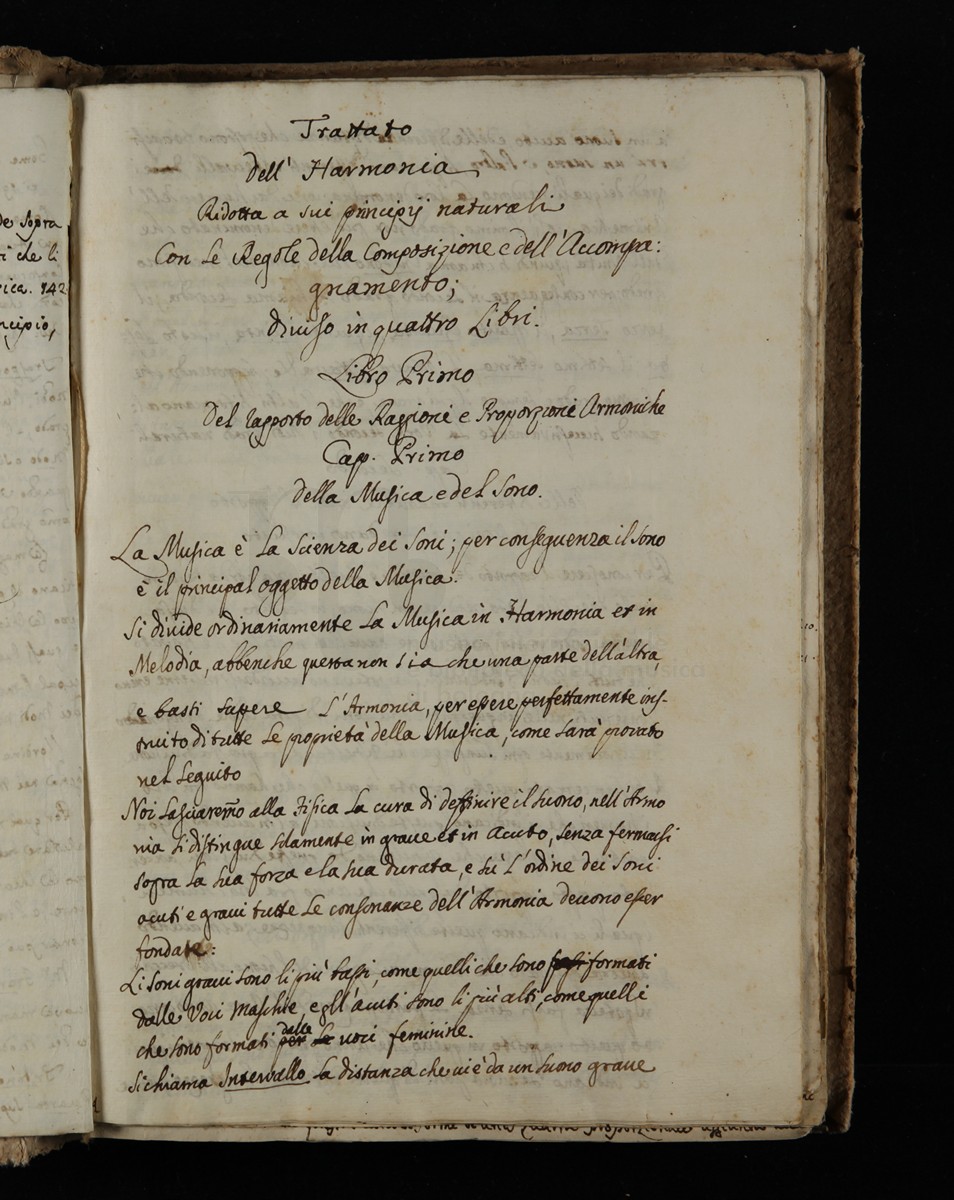 de sopra
i che li
ica. 142
ncipio,
Trattato
dell' Harmonia
Ridotta a sui principij naturali
Con Le Regole della Composizione e dell'Accompa:
gnamento;
diviso in quattro Libri.
Libro Primo
Del rapporto delle Raggioni e Proporzioni Armoniche
Cap. Primo
della Musica e del Sono.
La Musica è La Scienza dei Soni; per conseguenza il Sono
è il principal oggetto della Musica.
Si divide ordinariamente La Musica in Harmonia et in
Melodia, abbenche questa non sia che una parte dell'altra,
e basti sapere L'Armonia, per essere perfettamente ins-
truito di tutte Le proprietà della Musica, come sarà provato
nel Seguito
Noi Lasciarem̃o alla Fisica La cura di deffinire il Suono, nell'Armo
nia si distingue solamente in graue et in acuto, senza fermarsi
sopra La sua forza e la sua durata, e sù L'ordine dei Soni
acuti e graui tutte Le consonanze dell'Armonia deuono esser
fondate:
Li Soni graui sono li più bassi, come quelli che sono formati
dalle Voci Maschie, e gll'acuti sono li più alti, come quelli
che sono formati per dalle Le uoci feminine.
Si chiama Interuallo La distanza che ui è da un suono graue